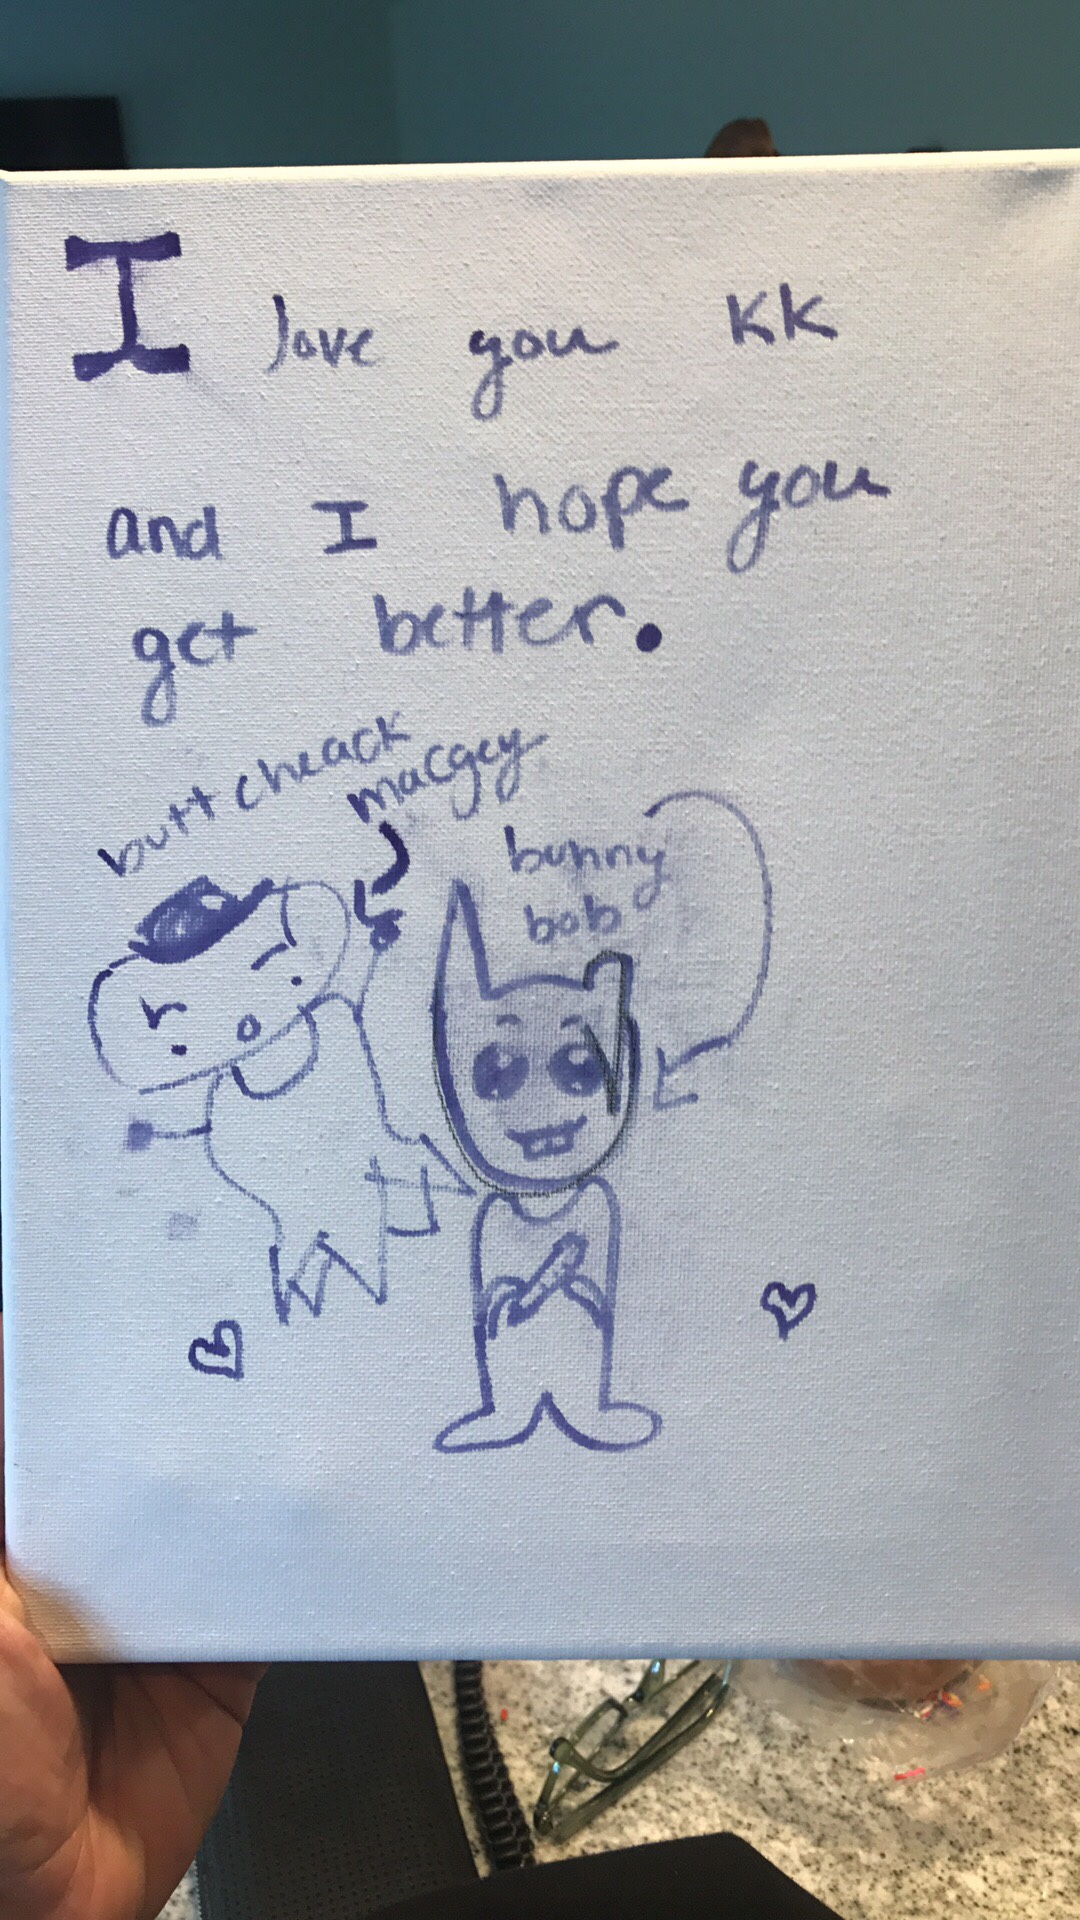 I love you KK
and I hope you
get better.
butt cheack
macgey
bunny
bob